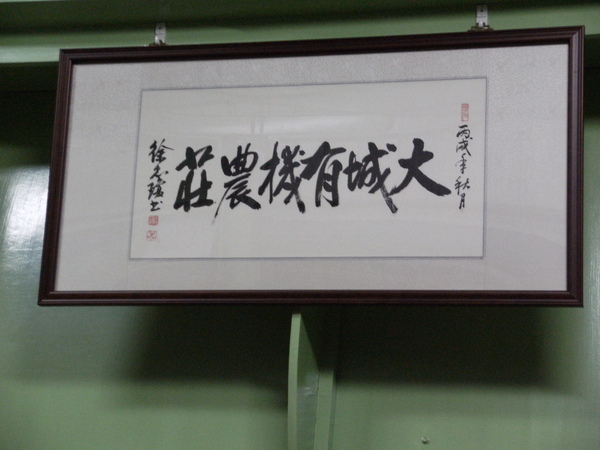 丙戌年秋月
大城有機農莊
徐